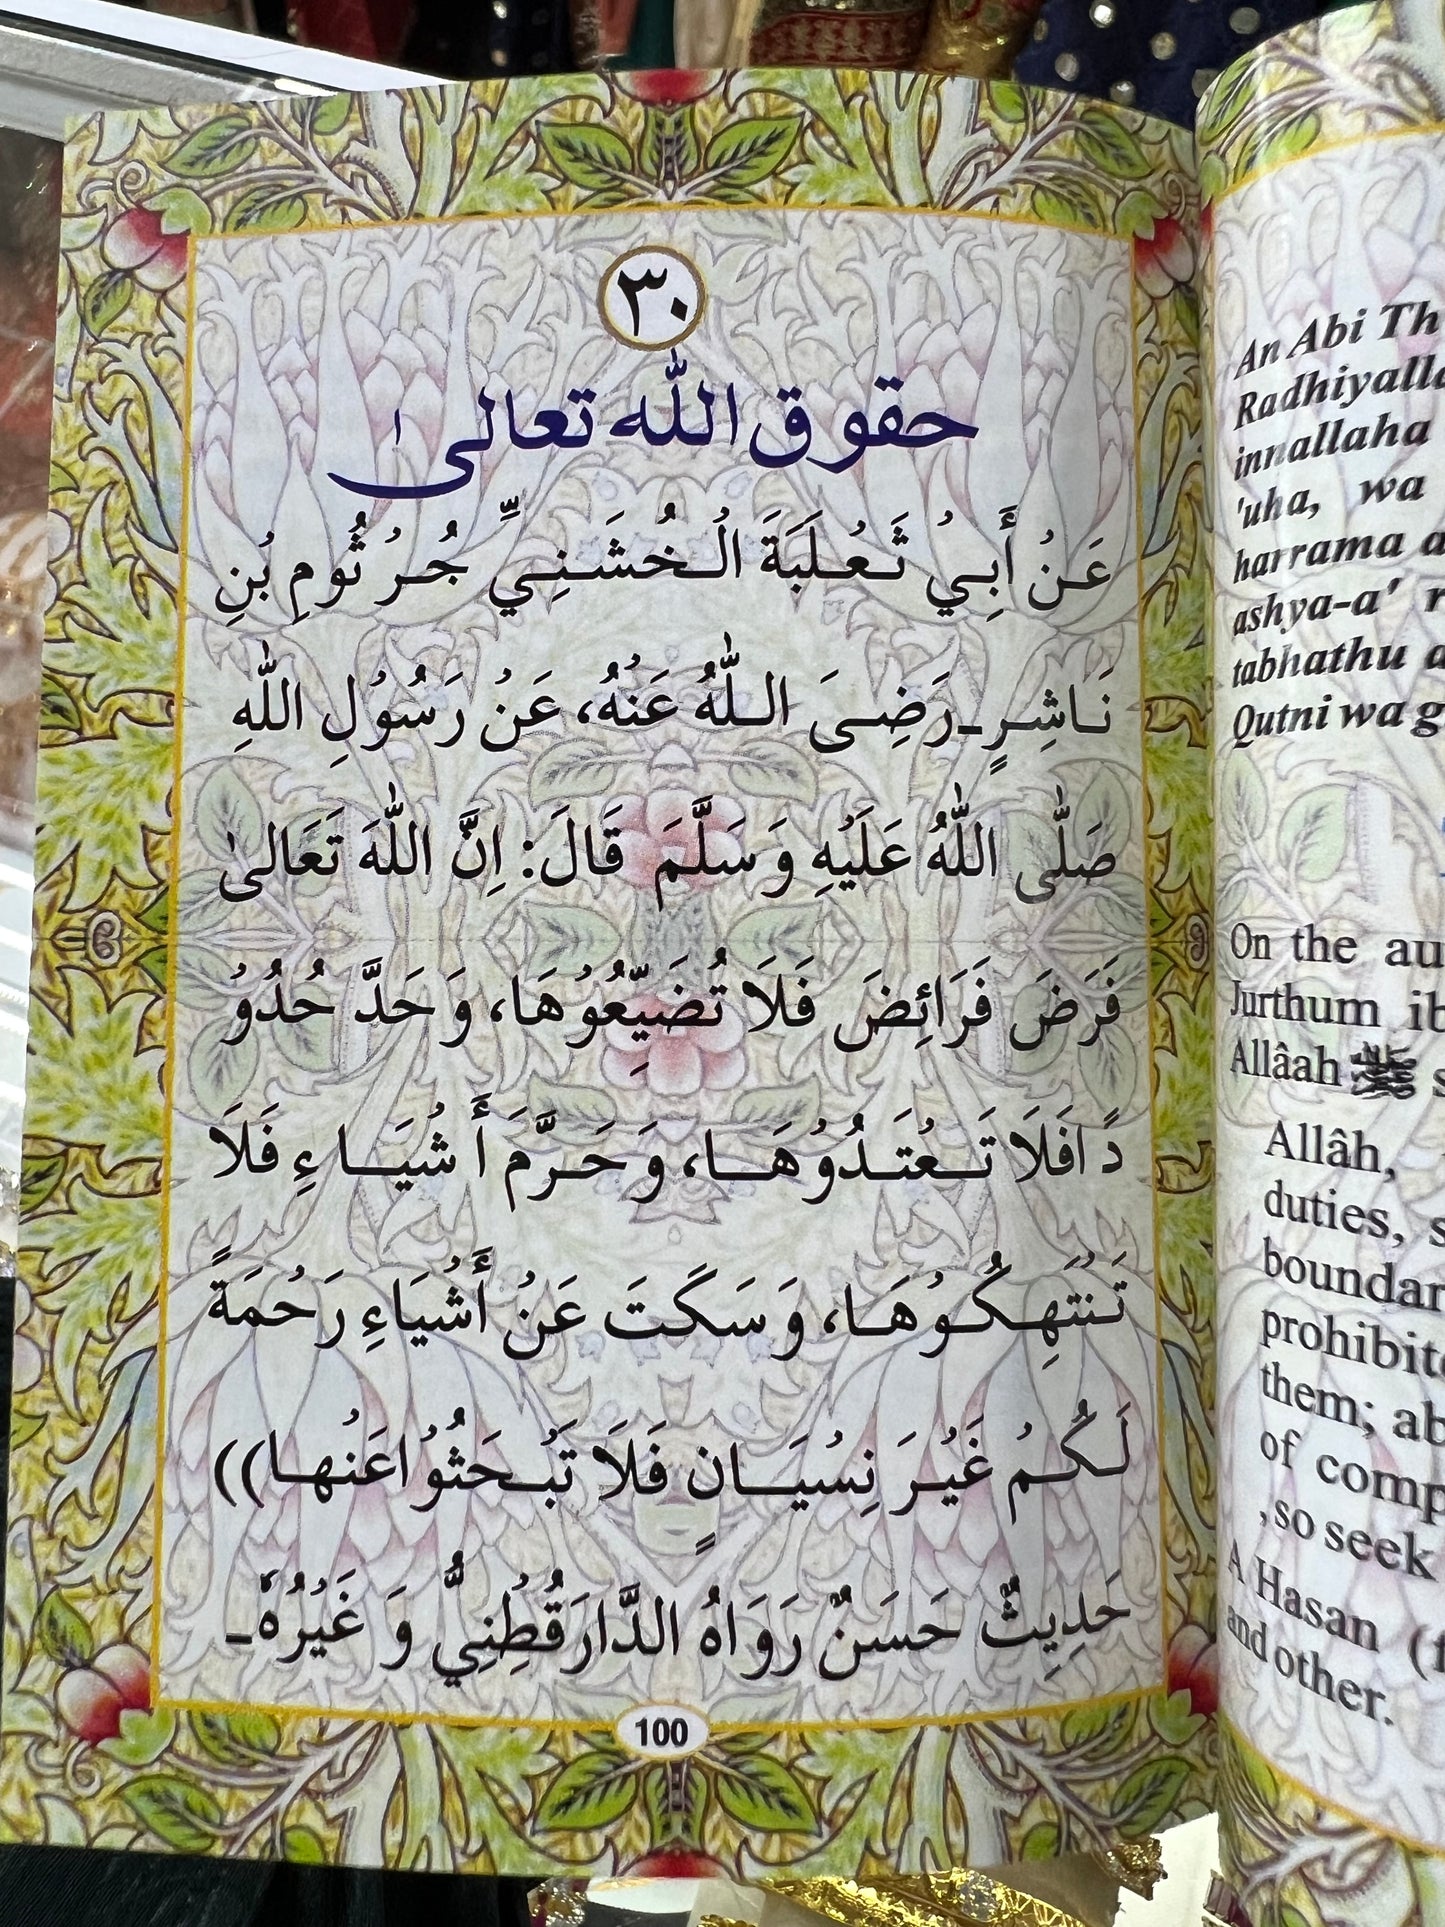 ٣٠
حقوق اللّٰه تعالى
عَنْ أَبِيْ ثَعْلَبَةَ الْخُشَنِيِّ جُرْثُومِ بْنِ
نَاشِرٍ۔رَضِىَ اللّٰهُ عَنْهُ، عَنْ رَسُوْلِ اللّٰهِ
صَلّٰى اللّٰهُ عَلَيْهِ وَسَلَّمَ قَالَ: اِنَّ اللّٰهَ تَعَالىٰ
فَرَضَ فَرَائِضَ فَلَا تُضَيِّعُوْهَا، وَحَدَّ حُدُوْ
دًا فَلَا تَعْتَدُوْهَا، وَحَرَّمَ أَشْيَاءٍ فَلَا
تَنْتَهِكُوْهَا، وَسَكَتَ عَنْ أَشْيَاءِ رَحْمَةً
لَكُمْ غَيْرَ نِسْيَانٍ فَلَا تَبْحَثُوْا عَنْها))
حَدِيثٌ حَسَنٌ رَوَاهُ الدَّارَقُطْنِيُّ وَ غَيْرُهٗ۔
100
An Abi Th
innallaha
'uha, wa
harrama
ashya-a'
tabhathu
Qutni wa
On the
Jurthum
Allâah ﷺ
Allâh,
duties,
them;
of
, so seek
A Hasan
and other.